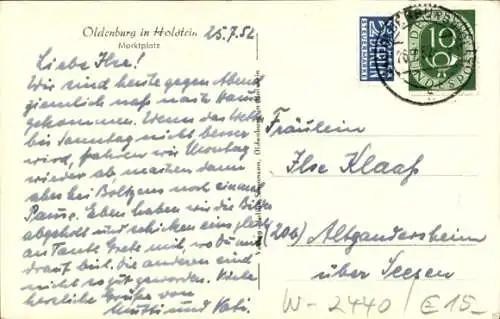 Oldenburg in Holstein
Marktplatz
25.7.52
Liebe Ilse!
Wir sind heute gegen Abend
ziemlich naß nach Haus
gekommen. Wenn das Wetter
bis Sonntag nicht besser
wird, fahren wir Montag
wieder ab, machen dann
aber bei Boltzens noch eine
Pause. Eben haben wir die Bilder
abgeholt und schicken eins gleich
an Tante Grete mit, wo Du mit
drauf bist. Die anderen sind
nicht so gut geworden. Viele
herzliche Grüße von
Mutti und Vati.
Fräulein
Ilse Klaaß
(20b) Altgandersheim
über Seesen
W-2440/€15.-
NOTOPFER
2
BERLIN
DEUTSCHE BUNDESPOST
10